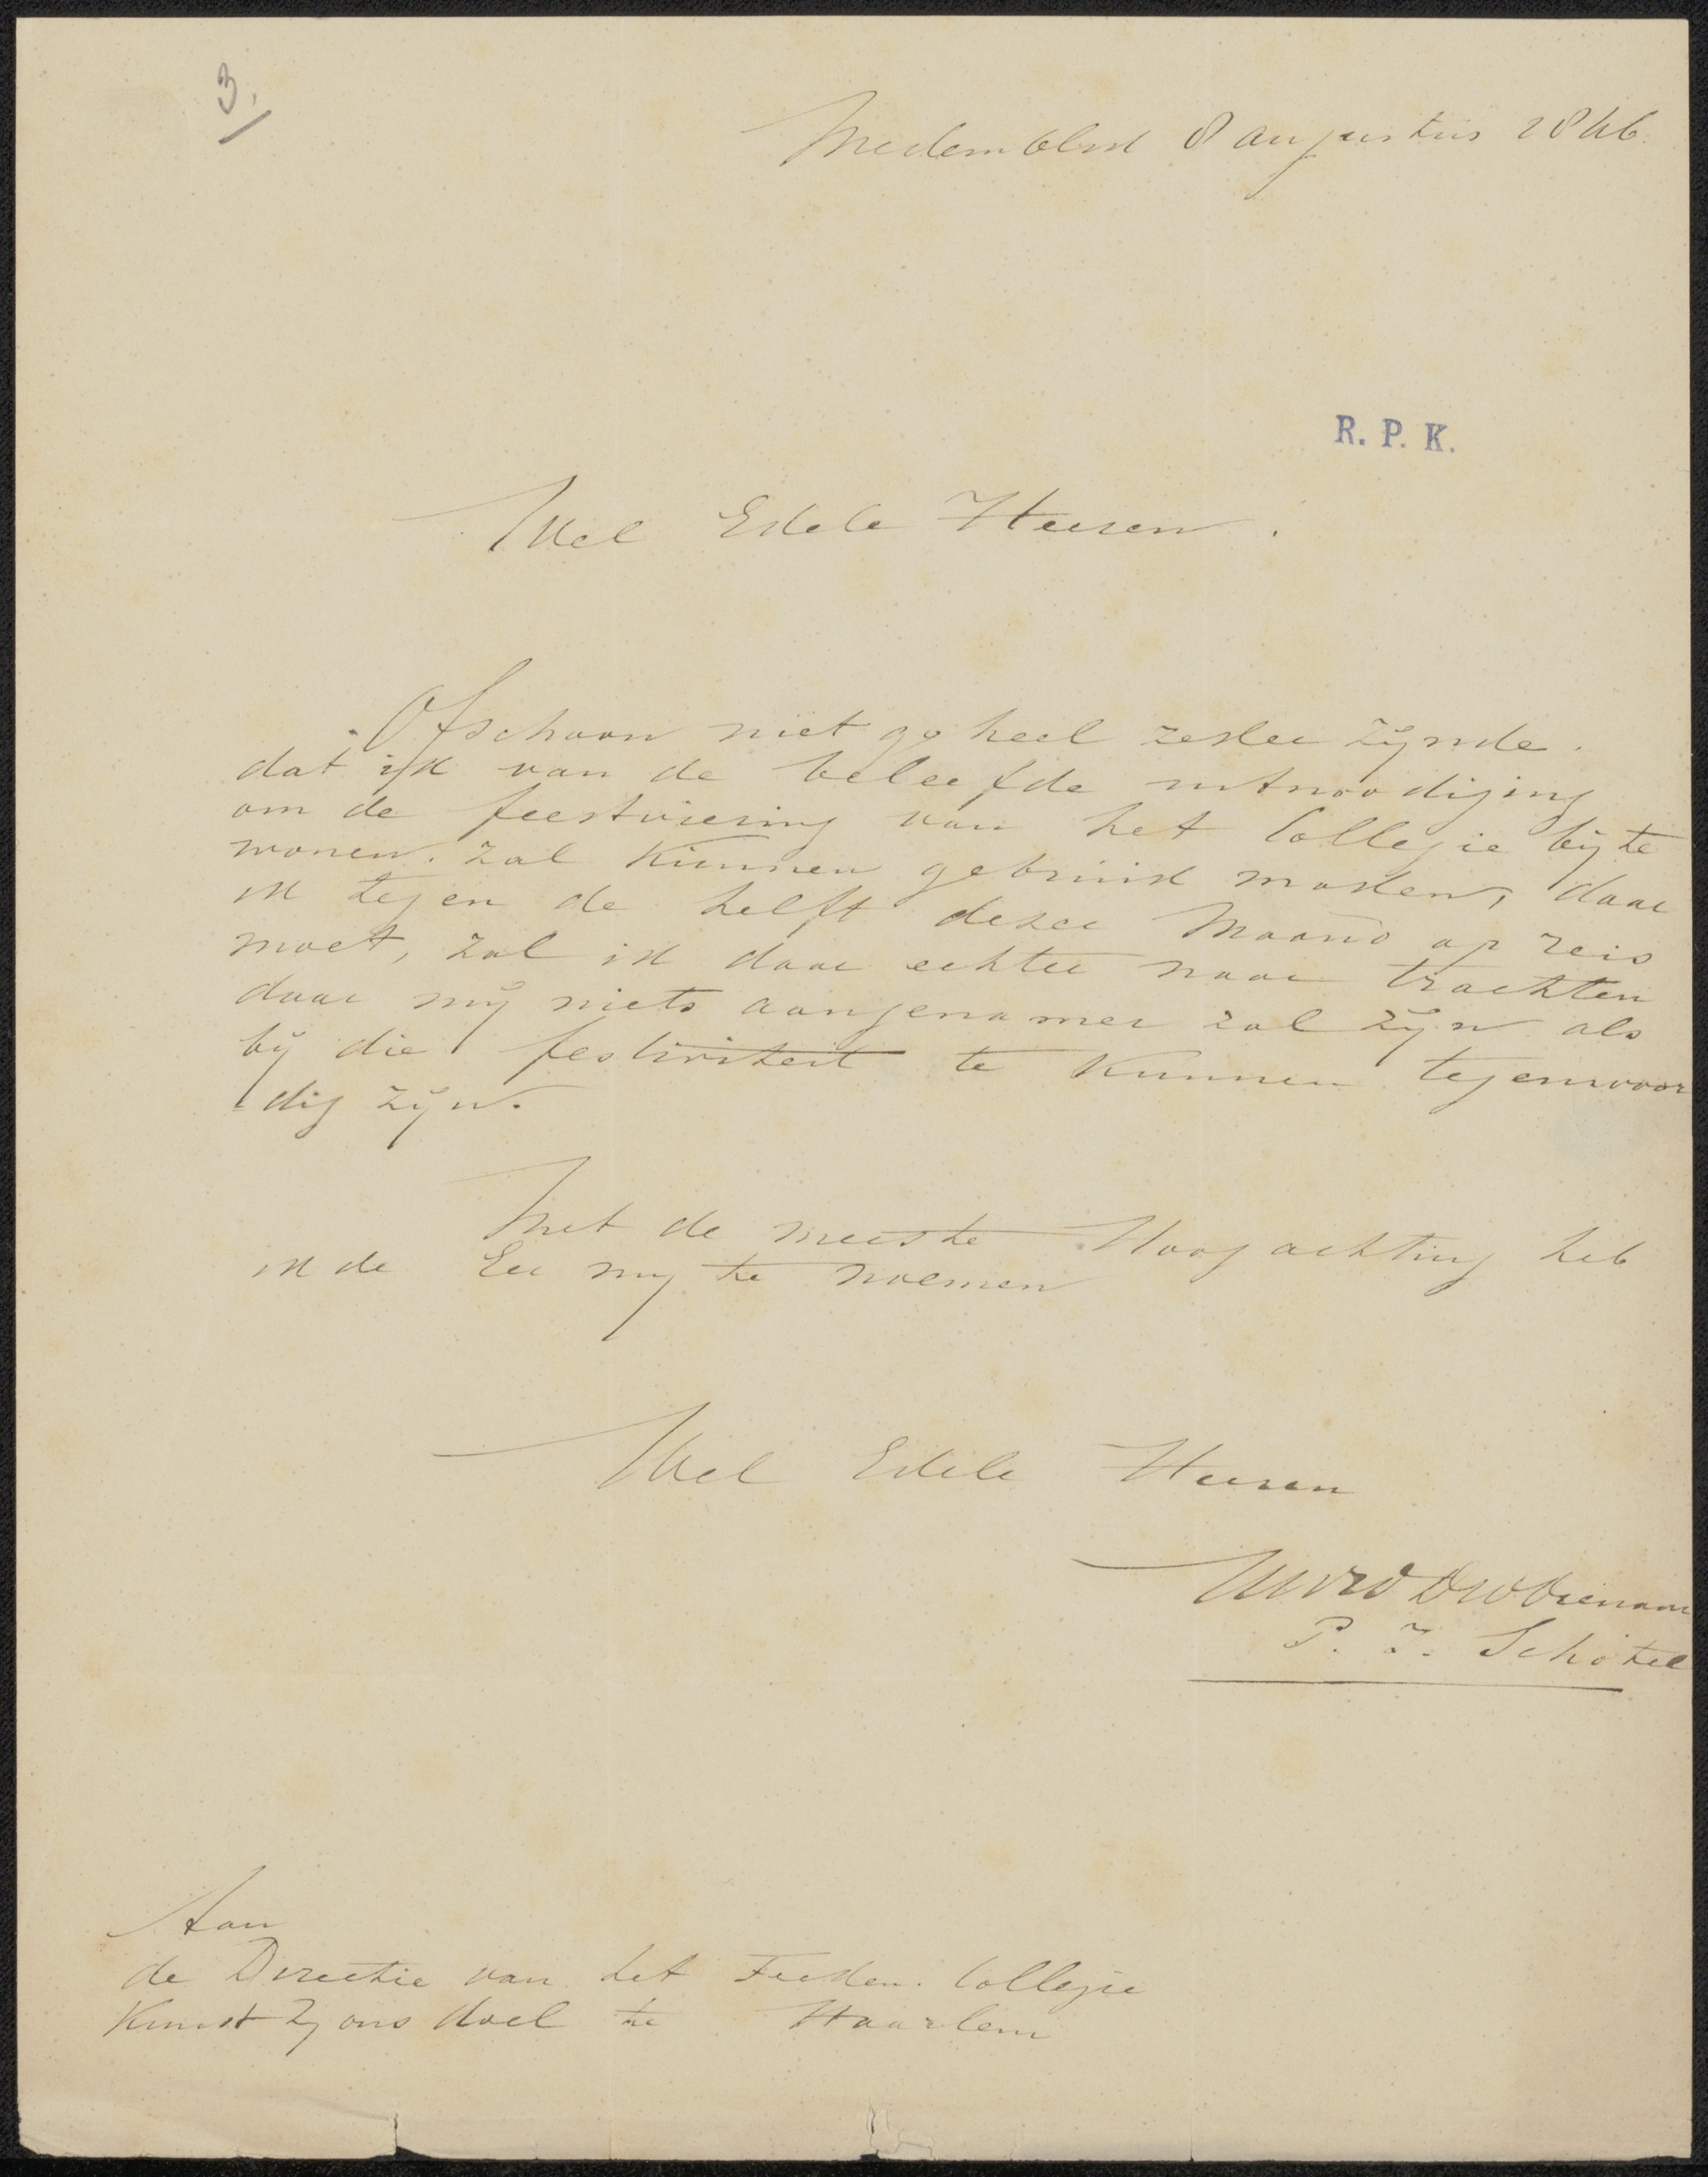 3.
Medemblik 8 augustus 1846.
R. P. K.
Wel Edele Heeren.
Ofschoon niet geheel zeker zijnde.
dat ik van de beleefde uitnoodiging
om de feestviering van het Collegie bij te
wonen. zal kunnen gebruik maken, daar
ik tegen de helft dezer Maand op reis
moet, zal ik daar echter naar trachten
daar mij niets aangenamer zal zijn als
bij die festiviteit te kunnen tegenwoor
dig zijn.
Met de meeste Hoogachting heb
ik de Eer mij te noemen
Wel Edele Heeren
UWED DW Dienaar
P. J. Schotel
Aan
de Directie van het Teeken. Collegie
Kunst Zij ons doel te Haarlem